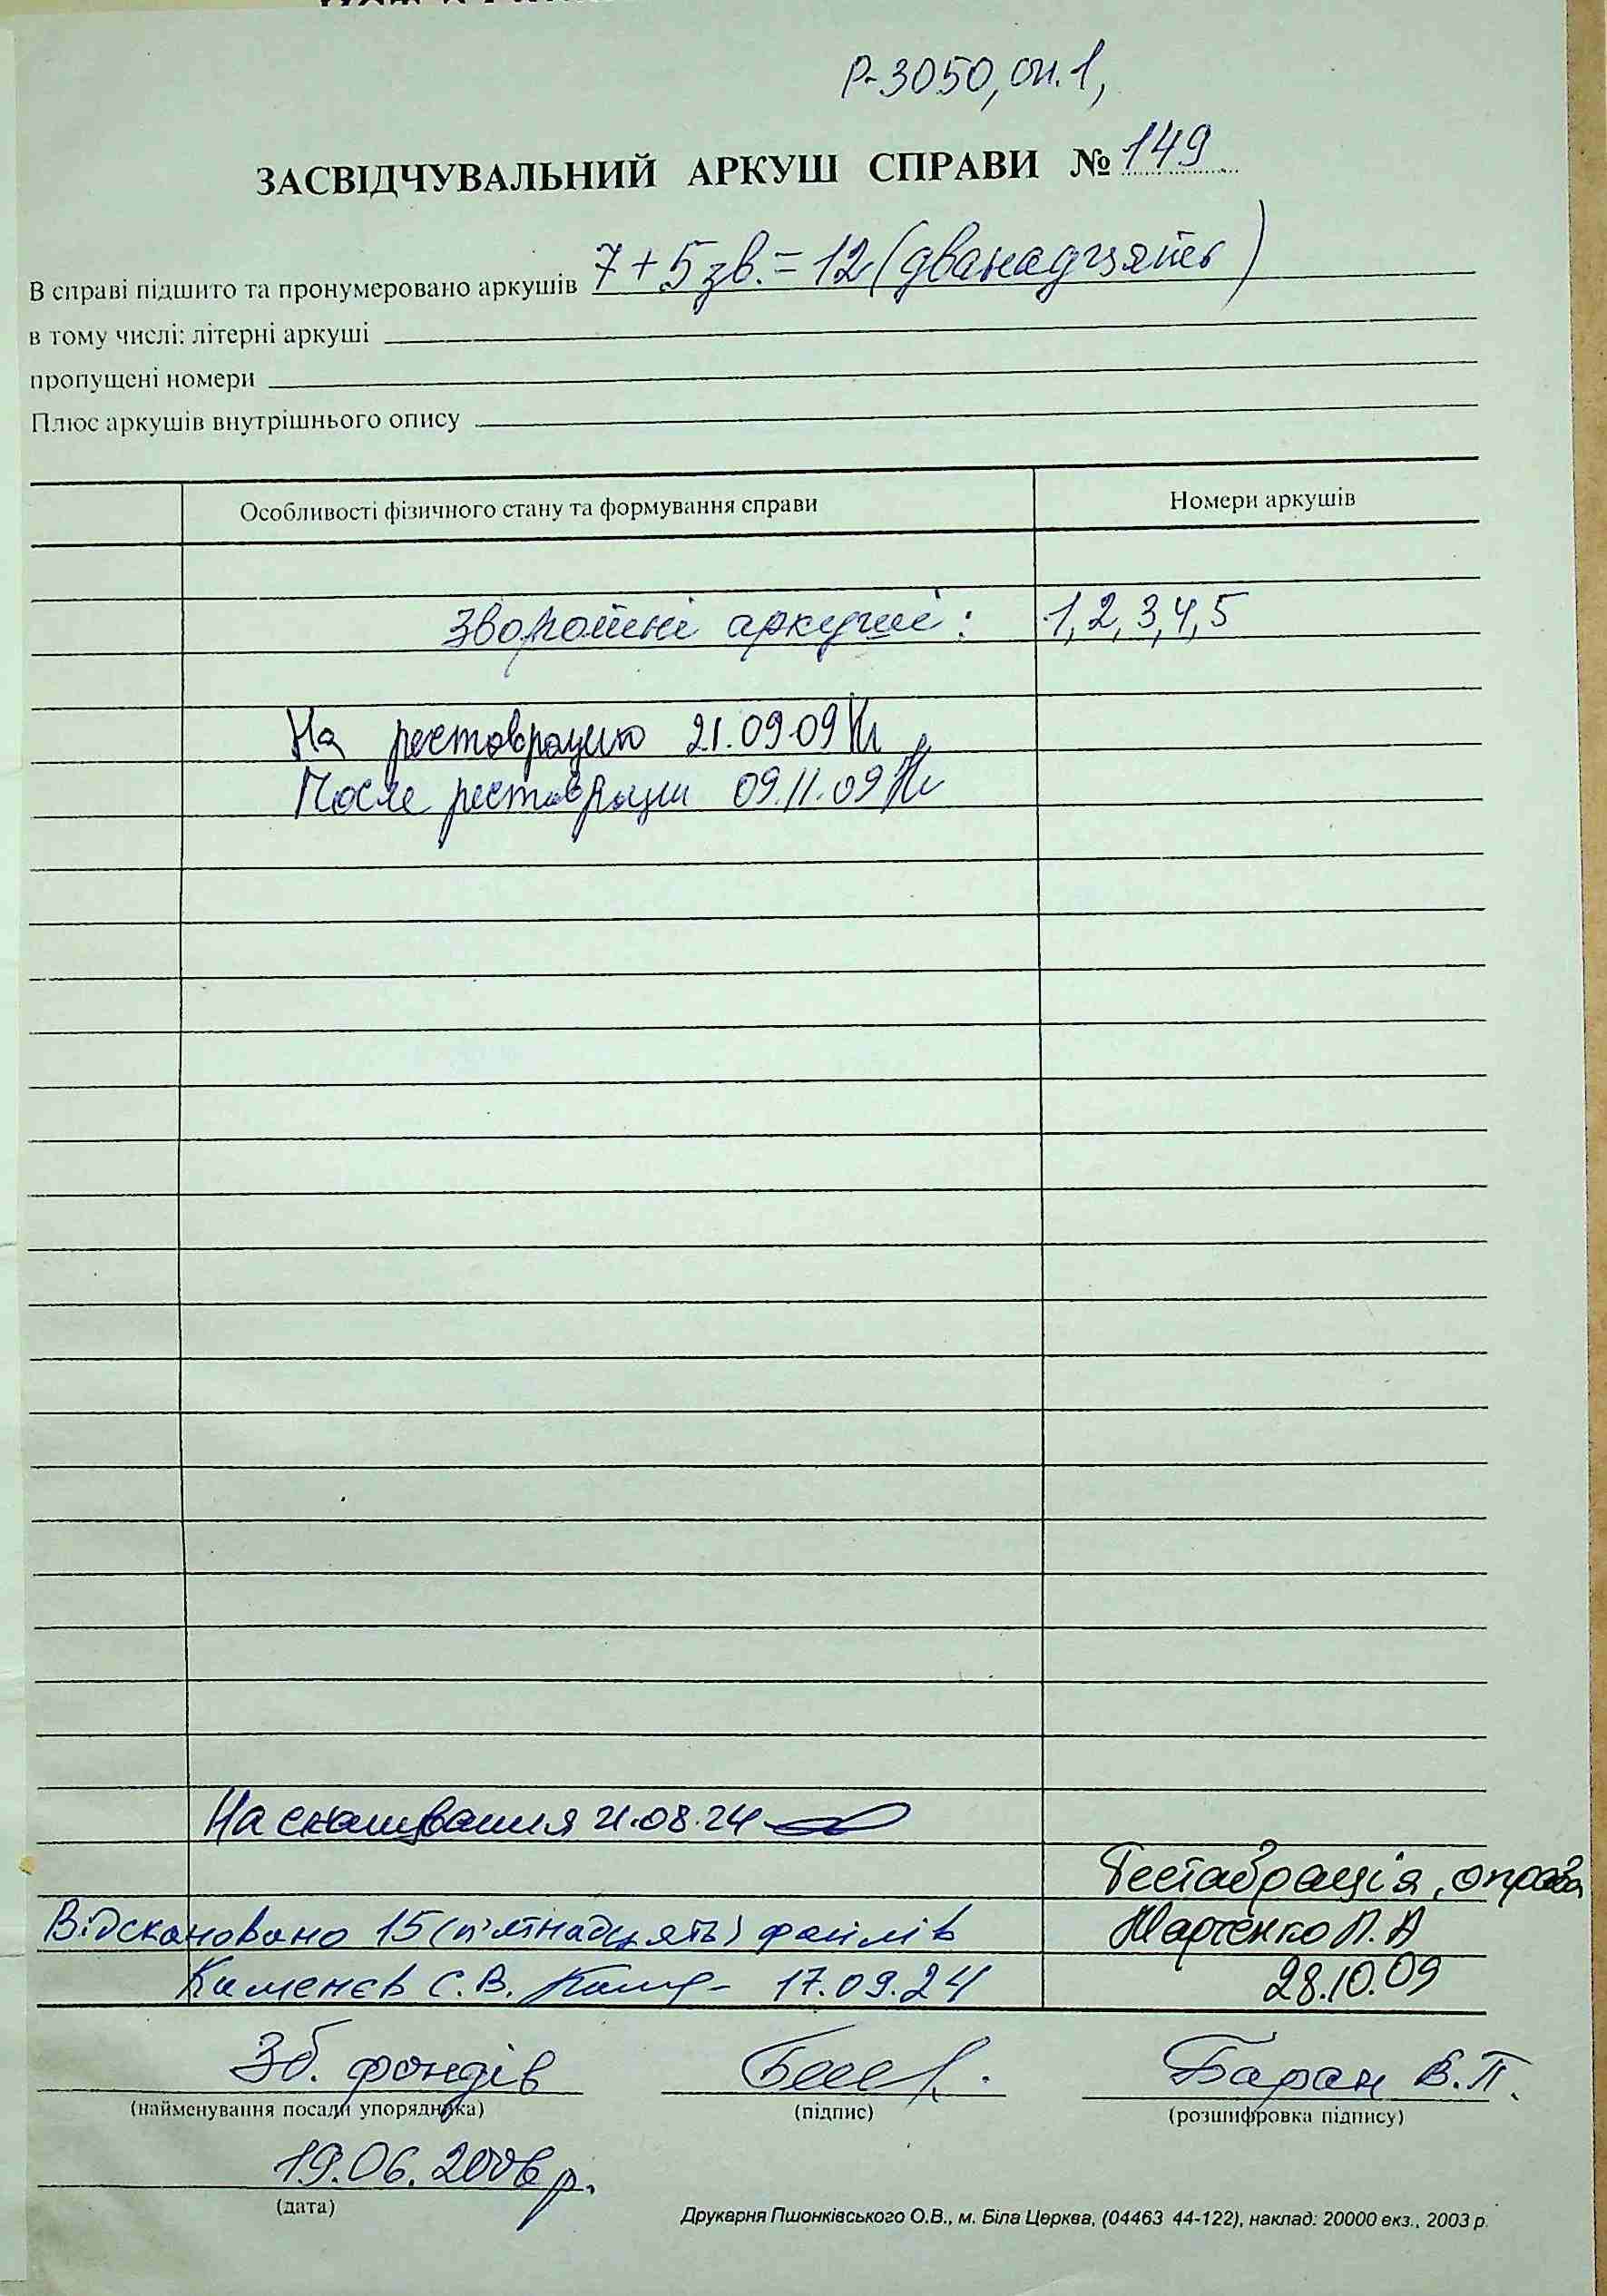 Р-3050, оп.1,
ЗАСВІДЧУВАЛЬНИЙ АРКУШ СПРАВИ № 149
В справі підшито та пронумеровано аркушів 7+5 зв.=12 (дванадцять)
в тому числі: літерні аркуші
пропущені номери
Плюс аркушів внутрішнього опису
Особливості фізичного стану та формування справи Номери аркушів
Зворотні аркуші: 1, 2, 3, 4, 5
На реставрацию 21.09.09
После реставрации 09.11.09
На сканування 21.08.24
Реставрація, оправа
Відскановано 15 (п'ятнадцять) файлів Марченко Л. А
Каменєв С.В. 17.09.24 28.10.09
Зб. фондів Баран В.П.
(найменування посади упорядника) (підпис) (розшифровка підпису)
19.06.2006 р.
(дата)
Друкарня Пшонківського О.В., м. Біла Церква, (04463 44-122), наклад: 20000 екз., 2003 р.